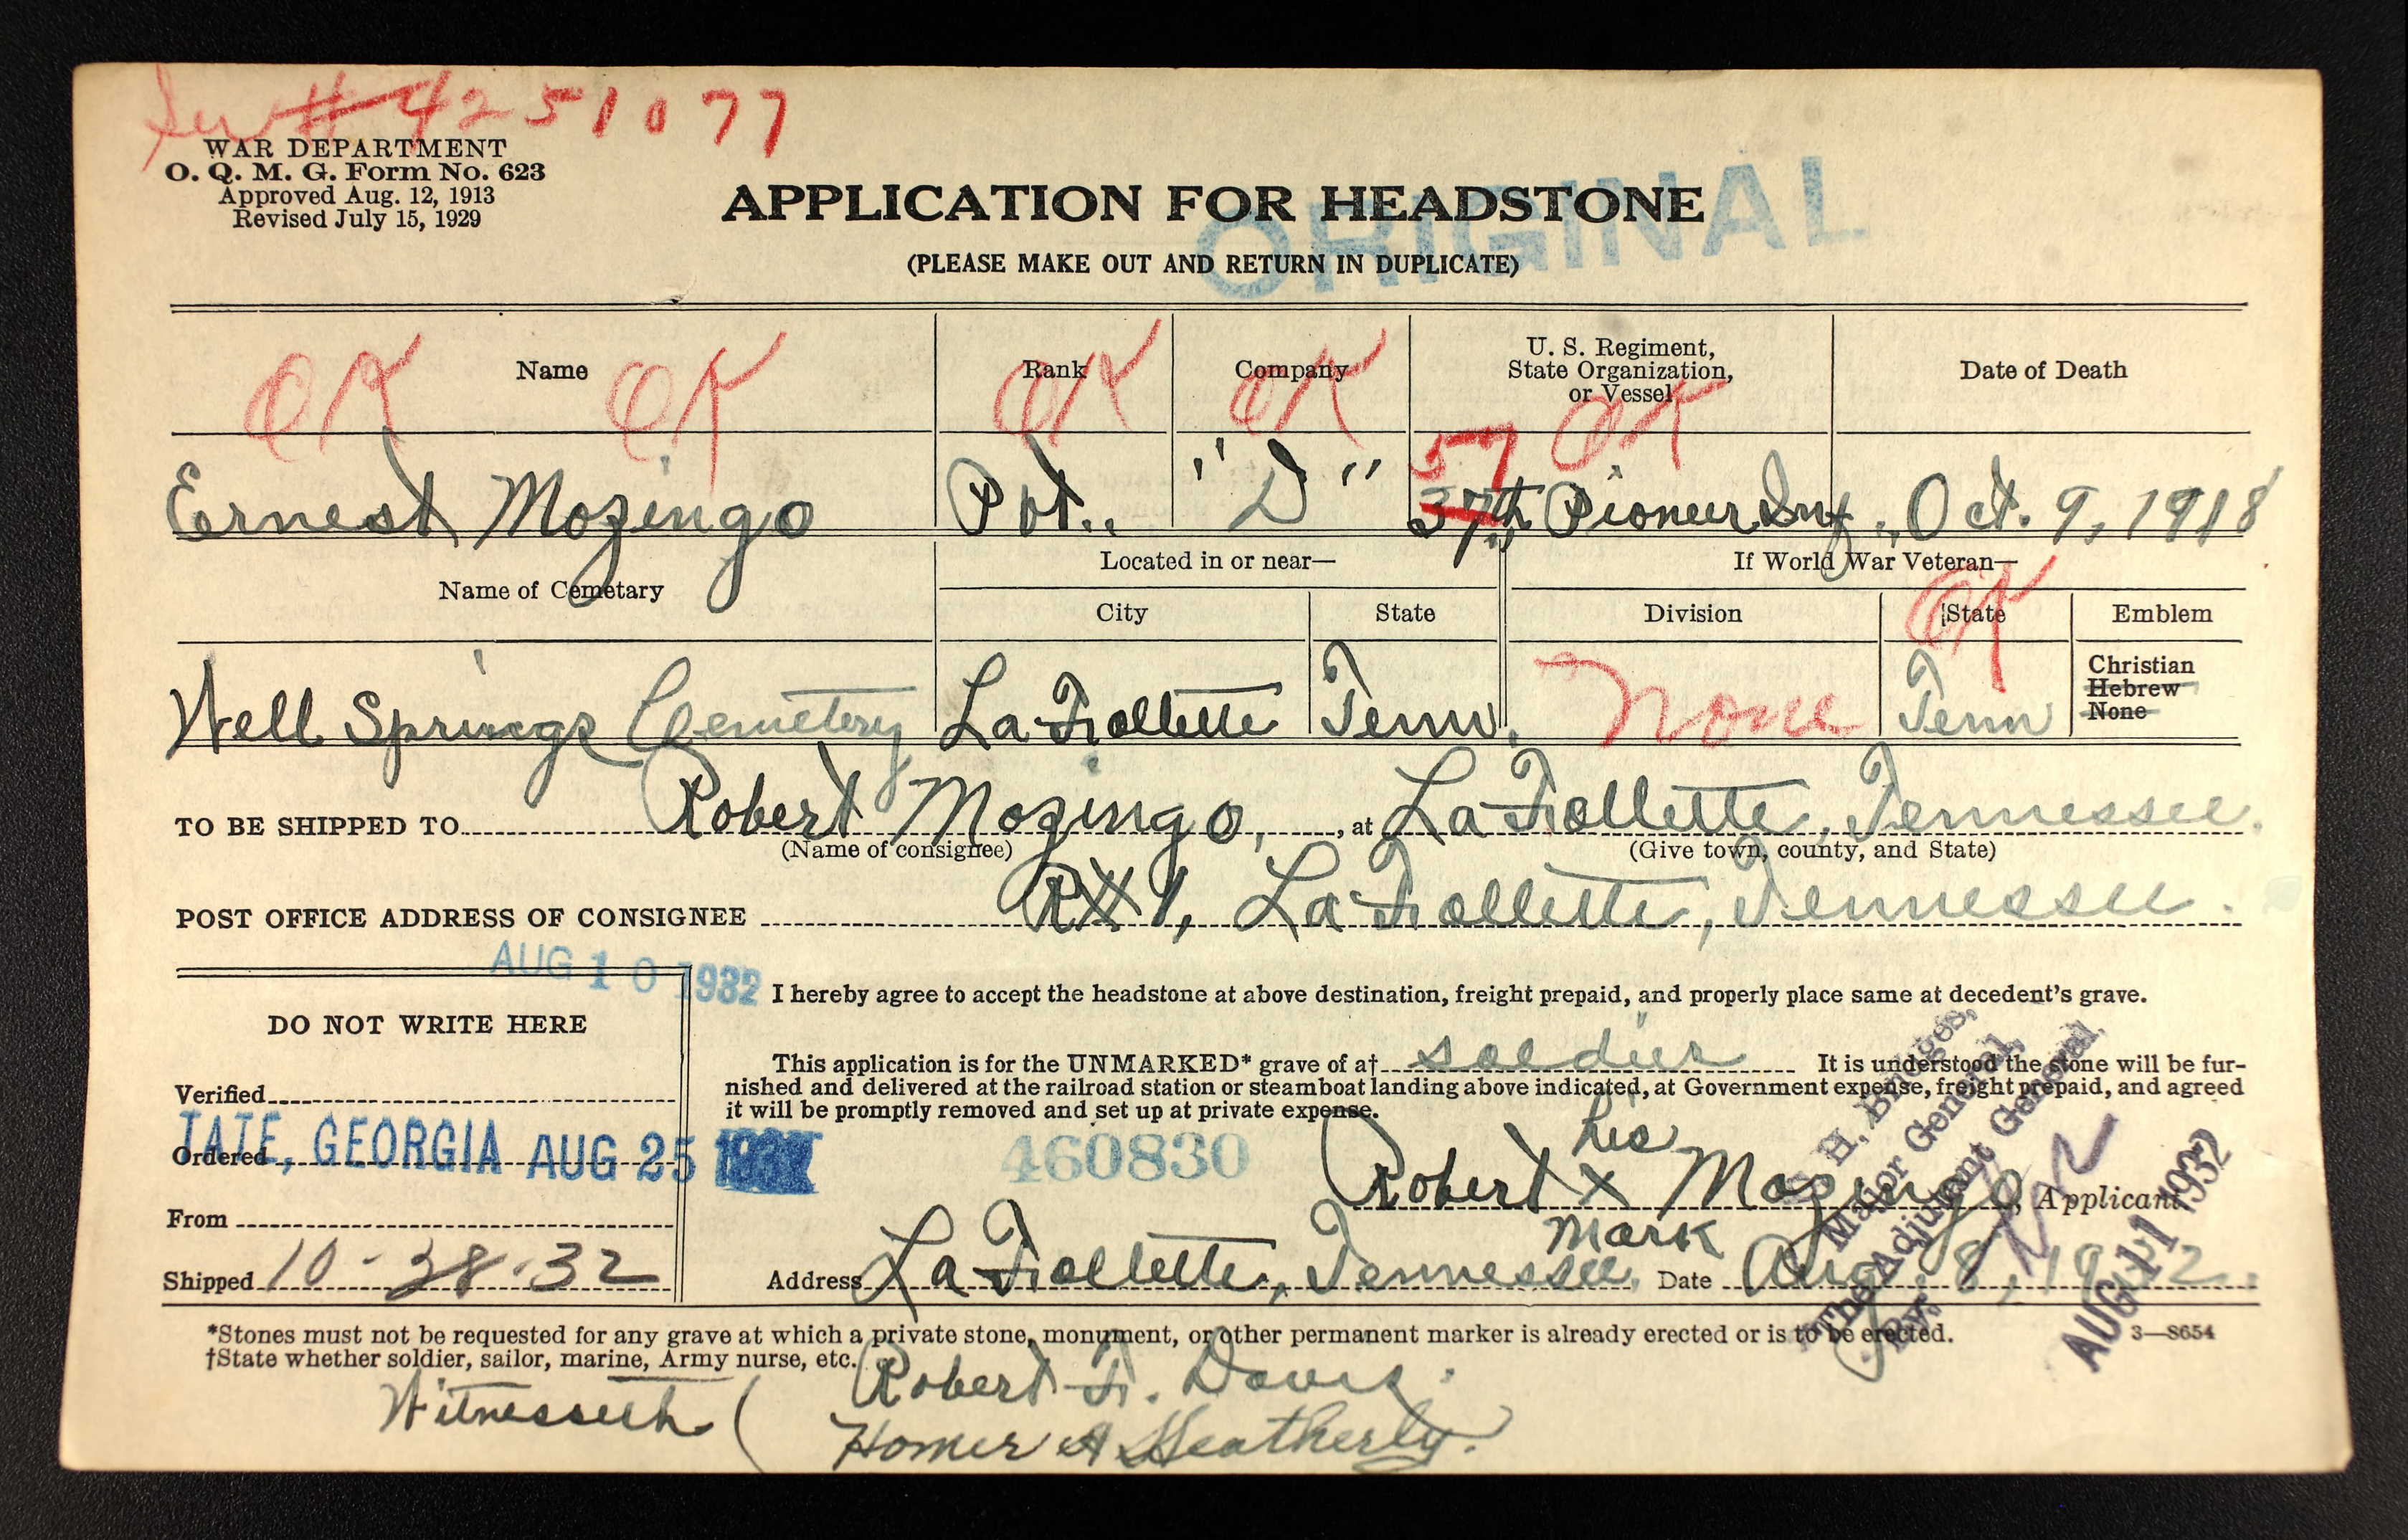 Ser # 4251077
WAR DEPARTMENT
O. Q. M. G. Form No. 623
Approved Aug. 12, 1913
Revised July 15, 1929
APPLICATION FOR HEADSTONE
ORIGINAL
(PLEASE MAKE OUT AND RETURN IN DUPLICATE)
Name Rank Company U. S. Regiment, State Organization, or Vessel Date of Death
OK OK OK OK OK
57
Ernest Mozingo Pvt. "D" 37th Pioneer Inf., Oct. 9, 1918
Name of Cemetary Located in or near— If World War Veteran—
City State Division State Emblem
OK
Well Springs Cemetery LaFollette Tenn. None Tenn
Christian
Hebrew
None
TO BE SHIPPED TO Robert Mozingo, , at LaFollette, Tennessee.
(Name of consignee) (Give town, county, and State)
POST OFFICE ADDRESS OF CONSIGNEE R#1, LaFollette, Tennessee.
AUG 10 1932
I hereby agree to accept the headstone at above destination, freight prepaid, and properly place same at decedent's grave.
DO NOT WRITE HERE
This application is for the UNMARKED* grave of a† soldier It is understood the stone will be fur-
nished and delivered at the railroad station or steamboat landing above indicated, at Government expense, freight prepaid, and agreed
it will be promptly removed and set up at private expense.
Verified
Ordered TATE, GEORGIA AUG 25 1932
460830
From
Shipped 10-28-32
his
Robert x Mozingo, Applicant
mark
Address LaFollette, Tennessee. Date Aug. 8, 1932.
H. Bridges,
Major General,
The Adjutant General.
By:
AUG 11 1932
*Stones must not be requested for any grave at which a private stone, monument, or other permanent marker is already erected or is to be erected.
3—8654
†State whether soldier, sailor, marine, Army nurse, etc.
Witnesseth ( Robert F. Davis.
Homer A Heatherly.